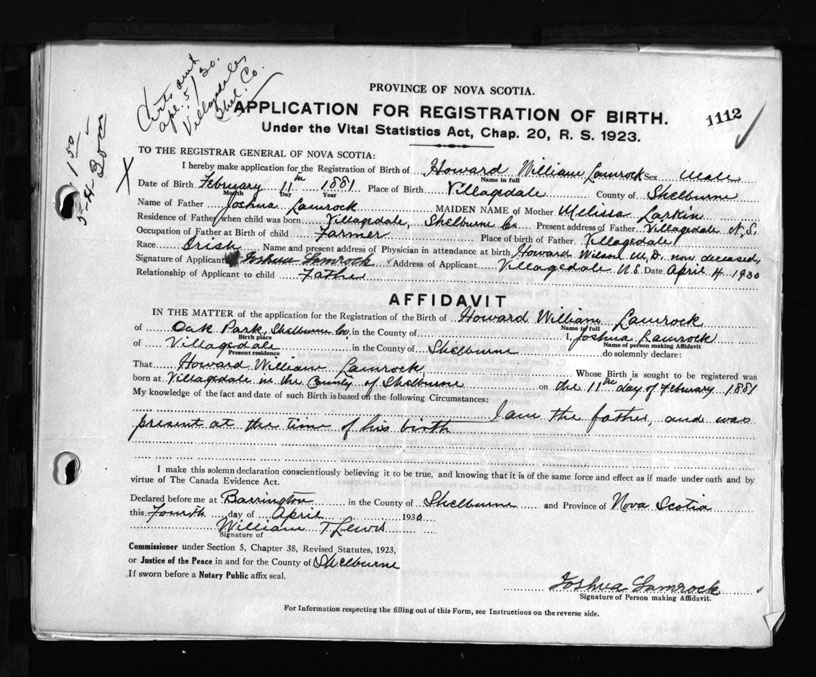 Certs and
Apr. 5/30.
Villagedale
Shel. Co.
1 50
PROVINCE OF NOVA SCOTIA.
APPLICATION FOR REGISTRATION OF BIRTH.
1112
Under the Vital Statistics Act, Chap. 20, R. S. 1923.
TO THE REGISTRAR GENERAL OF NOVA SCOTIA:
I hereby make application for the Registration of Birth of Howard William Lamrock Sex Male
Name in full
X
Date of Birth February 11th 1881 Place of Birth Villagedale County of Shelburne
Month Day Year
Name of Father Joshua Lamrock MAIDEN NAME of Mother Melissa Larkin
Residence of Father when child was born Villagedale, Shelburne Co Present address of Father Villagedale N.S.
Occupation of Father at Birth of child Farmer Place of birth of Father Villagedale
Race Irish Name and present address of Physician in attendance at birth Howard Wilson M.D. now deceased
Signature of Applicant Joshua Lamrock Address of Applicant Villagedale N.S. Date April 4 1930
Relationship of Applicant to child Father
AFFIDAVIT
IN THE MATTER of the application for the Registration of the Birth of Howard William Lamrock
Name in full
of Oak Park, Shelburne Co, in the County of I, Joshua Lamrock
Birth place Name of person making Affidavit
of Villagedale in the County of Shelburne do solemnly declare:
Present residence
That Howard William Lamrock Whose Birth is sought to be registered was
born at Villagedale in the County of Shelburne on the 11th day of February 1881
My knowledge of the fact and date of such Birth is based on the following Circumstances:
I am the father, and was
present at the time of his birth
I make this solemn declaration conscientiously believing it to be true, and knowing that it is of the same force and effect as if made under oath and by
virtue of The Canada Evidence Act.
Declared before me at Barrington in the County of Shelburne and Province of Nova Scotia
this Fourth day of April 1930
William T Lewis
Signature of
Commissioner under Section 5, Chapter 38, Revised Statutes, 1923,
or Justice of the Peace in and for the County of Shelburne
If sworn before a Notary Public affix seal.
Joshua Lamrock
Signature of Person making Affidavit.
For Information respecting the filling out of this Form, see Instructions on the reverse side.